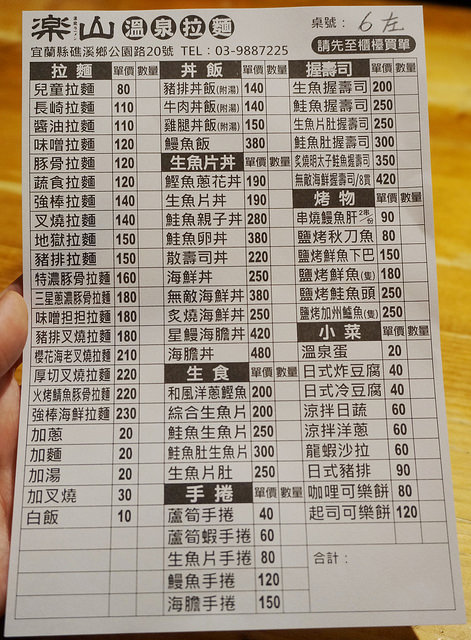 楽山 溫泉拉麵
桌號： 6左
宜蘭縣礁溪鄉公園路20號 TEL：03-9887225
請先至櫃檯買單
拉麵 單價 數量
兒童拉麵 80
長崎拉麵 110
醬油拉麵 110
味噌拉麵 120
豚骨拉麵 120
蔬食拉麵 120
強棒拉麵 140
叉燒拉麵 140
地獄拉麵 150
豬排拉麵 150
特濃豚骨拉麵 160
三星蔥濃豚骨拉麵 180
味噌担担拉麵 180
豬排叉燒拉麵 180
櫻花海老叉燒拉麵 210
厚切叉燒拉麵 220
火烤鯖魚豚骨拉麵 220
強棒海鮮拉麵 230
加蔥 20
加麵 20
加湯 20
加叉燒 30
白飯 10
丼飯 單價 數量
豬排丼飯(附湯) 140
牛肉丼飯(附湯) 140
雞腿丼飯(附湯) 150
鰻魚飯 380
生魚片丼 單價 數量
鰹魚蔥花丼 190
生魚片丼 190
鮭魚親子丼 280
鮭魚卵丼 380
散壽司丼 220
海鮮丼 250
無敵海鮮丼 380
炙燒海鮮丼 250
星鰻海膽丼 420
海膽丼 480
生食 單價 數量
和風洋蔥鰹魚 200
綜合生魚片 200
鮭魚生魚片 250
鮭魚肚生魚片 300
生魚片肚 250
手捲 單價 數量
蘆筍手捲 40
蘆筍蝦手捲 60
生魚片手捲 80
鰻魚手捲 120
海膽手捲 150
握壽司 單價 數量
生魚握壽司 200
鮭魚握壽司 250
生魚片肚握壽司 250
鮭魚肚握壽司 300
炙燒明太子鮭魚握壽司 350
無敵海鮮握壽司/8貫 420
烤物 單價 數量
串燒鰻魚肝 2串/份 90
鹽烤秋刀魚 80
鹽烤鮮魚下巴 150
鹽烤鮮魚(隻) 180
鹽烤鮭魚頭 250
鹽烤加州鱸魚(隻) 250
小菜 單價 數量
溫泉蛋 20
日式炸豆腐 40
日式冷豆腐 40
涼拌日蔬 60
涼拌洋蔥 60
龍蝦沙拉 60
日式豬排 90
咖哩可樂餅 80
起司可樂餅 120
合計：